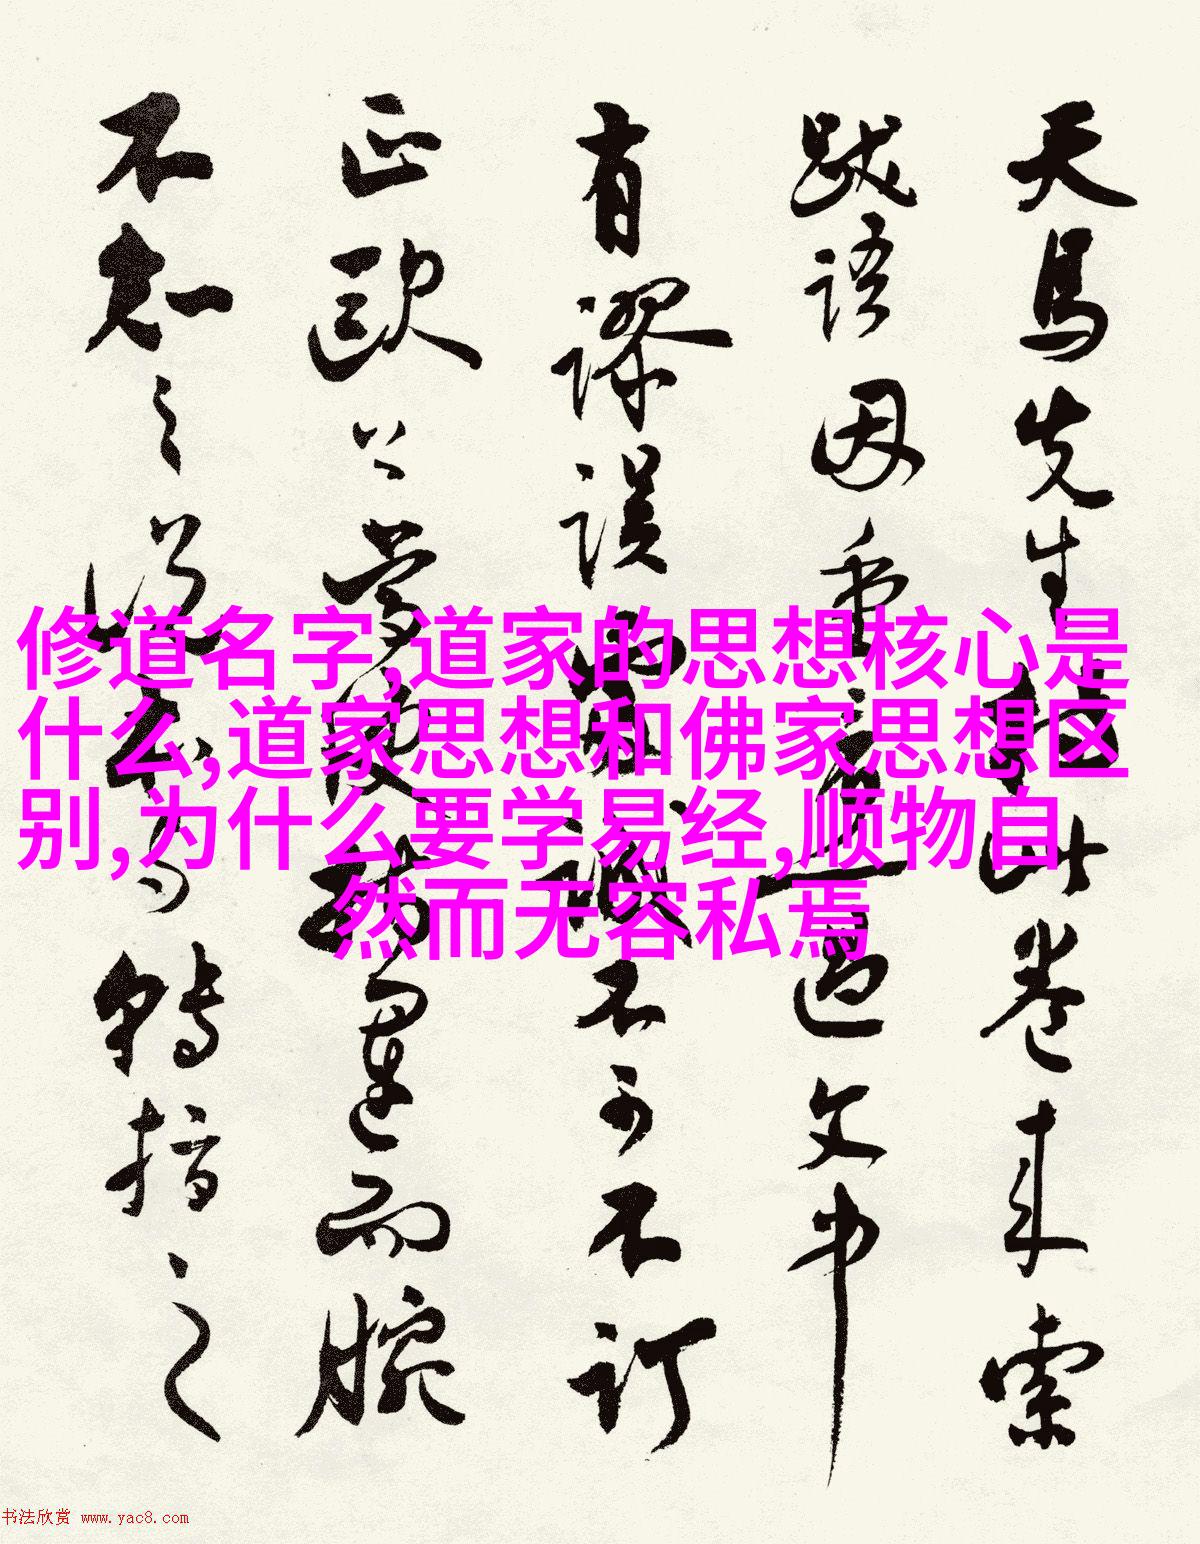 修道名字,道家的思想核心是
什么,道家思想和佛家思想区
别,为什么要学易经,顺物自
然而无容私焉
天馬先生持此卷来索
跋语因重一过文中
有谬误不可不訂
正欧公使指運而腕
不知之说为转指之
书法欣赏 www.yac8.com